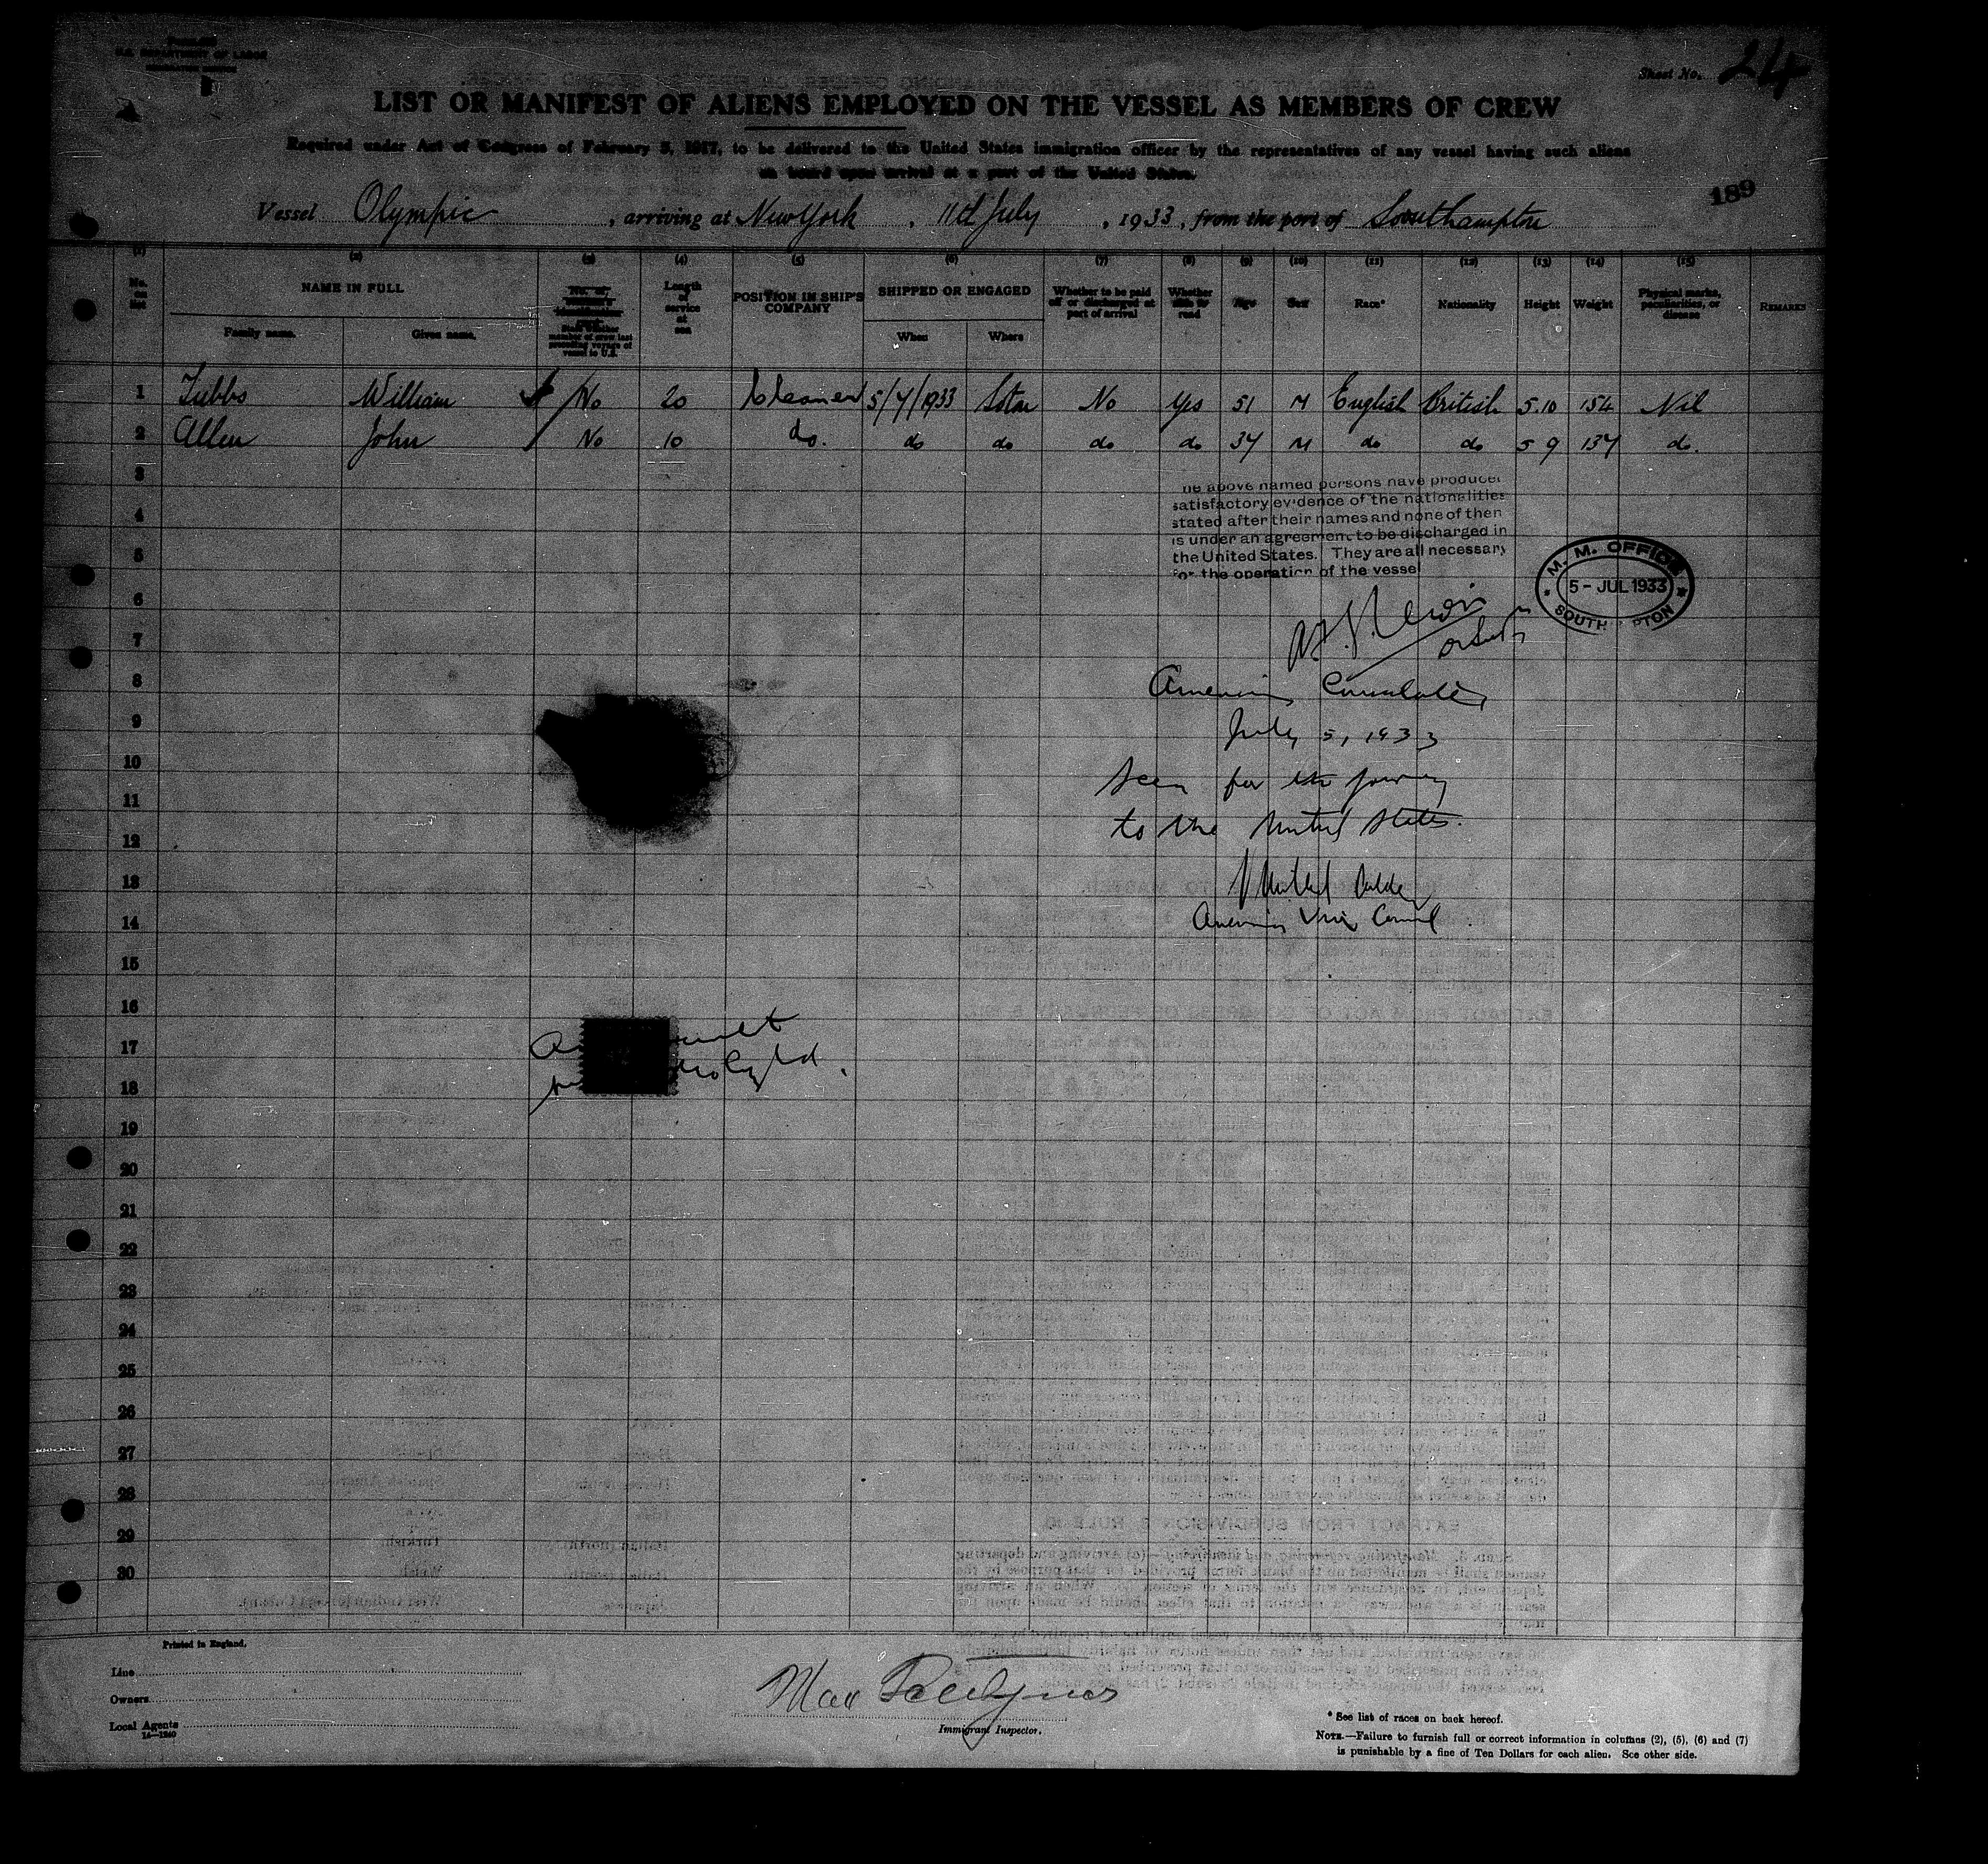 U.S. DEPARTMENT OF LABOR
Sheet No. 24
LIST OR MANIFEST OF ALIENS EMPLOYED ON THE VESSEL AS MEMBERS OF CREW
Required under Act of Congress of February 5, 1917, to be delivered to the United States immigration officer by the representatives of any vessel having such aliens
on board upon arrival at a port of the United States.
189
Vessel Olympic, arriving at New York, 11th July, 1933, from the port of Southampton
(1) (2) (3) (4) (5) (6) (7) (8) (9) (10) (11) (12) (13) (14) (15)
No. on list
NAME IN FULL
Family name.
Given name.
State whether member of crew last preceding voyage of vessel to U.S.
Length of service at sea
POSITION IN SHIP'S COMPANY
SHIPPED OR ENGAGED
When
Where
Whether to be paid off or discharged at port of arrival
Whether able to read
Age
Sex
Race*
Nationality
Height
Weight
Physical marks, peculiarities, or disease
REMARKS
1 Tubbs William No 20 Cleaner 5/7/1933 Soton No Yes 51 M English British 5.10 154 Nil
2 Allen John No 10 do. do do do do 37 M do do 5 9 137 do.
3
4
5
6
7
8
9
10
11
12
13
14
15
16
17
18
19
20
21
22
23
24
25
26
27
28
29
30
he above named persons have produced
satisfactory evidence of the nationalities
stated after their names and none of then
is under an agreement to be discharged in
the United States. They are all necessary
for the operation of the vessel
M. M. OFFICE
5 - JUL 1933
SOUTH PTON
American Consulate
July 5, 1933
Seen for the journey
to the United States.
American Vice Consul
Printed in England.
Line
Owners
Local Agents
16—1240
Max
Immigrant Inspector.
* See list of races on back hereof.
NOTE.—Failure to furnish full or correct information in columns (2), (5), (6) and (7)
is punishable by a fine of Ten Dollars for each alien. See other side.